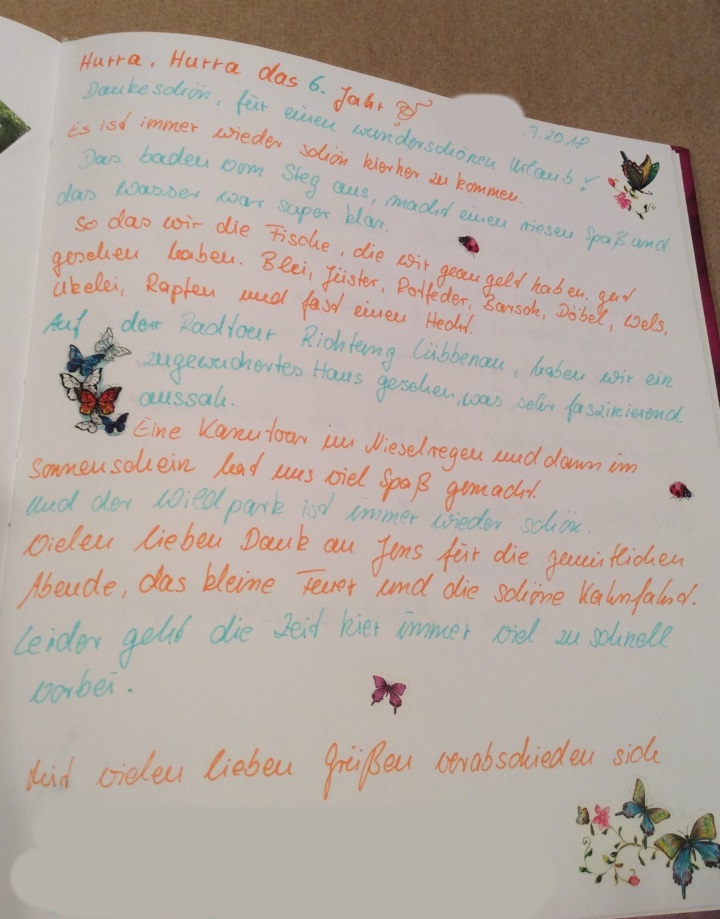 Hurra, Hurra das 6. Jahr
7.2018
Dankeschön, für einen wunderschönen Urlaub!
Es ist immer wieder schön hierher zu kommen.
Das baden vom Steg aus, macht einen riesen Spaß und
das Wasser war super klar.
so das wir die Fische, die wir geangelt haben. gut
gesehen haben. Blei, Güster, Rotfeder, Barsch, Döbel, Wels,
Ukelei, Rapfen und fast einen Hecht.
Auf der Radtour Richtung Lübbenau, haben wir ein
zugewuchertes Haus gesehen, was sehr faszinierend
aussah.
Eine Kanutour im Nieselregen und dann im
Sonnenschein hat uns viel Spaß gemacht.
Und der Wildpark ist immer wieder schön.
Vielen lieben Dank an Jens für die gemütlichen
Abende, das kleine Feuer und die schöne Kahnfahrt.
Leider geht die Zeit hier immer viel zu schnell
vorbei.
Mit vielen lieben Grüßen verabschieden sich